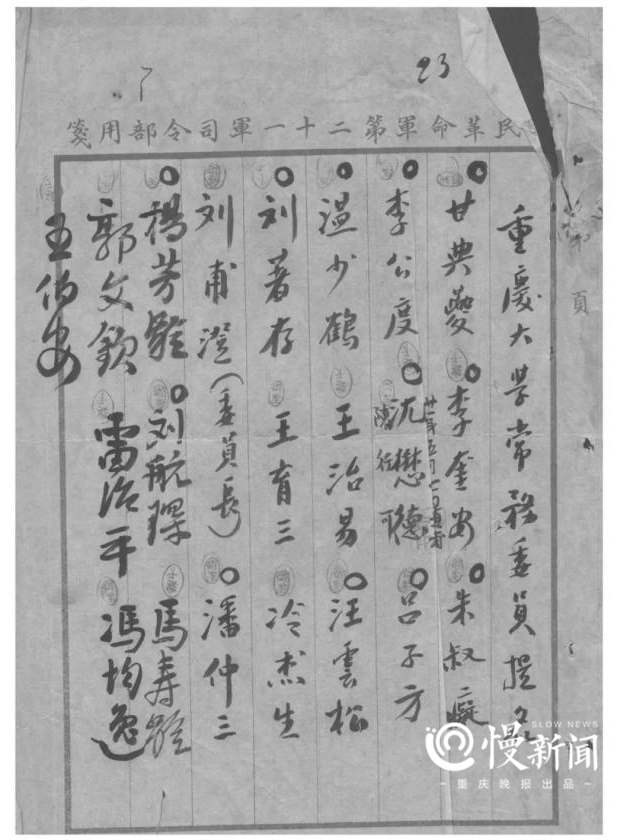 23
民革命軍第二十一軍司令部用箋
第 頁
重慶大学常務委員提名
甘典夔 李奎安 朱叔癡
李公度 沈懋德 呂子方
溫少鶴 王治易 汪雲松
刘著存 王育三 冷杰生
刘甫澄（委員長） 潘仲三
楊芳齡 刘航琛 馬寿齡
郭文欽 雷治平 馮均逸
王伯安
SLOW NEWS
慢新闻
-重庆晚报出品-